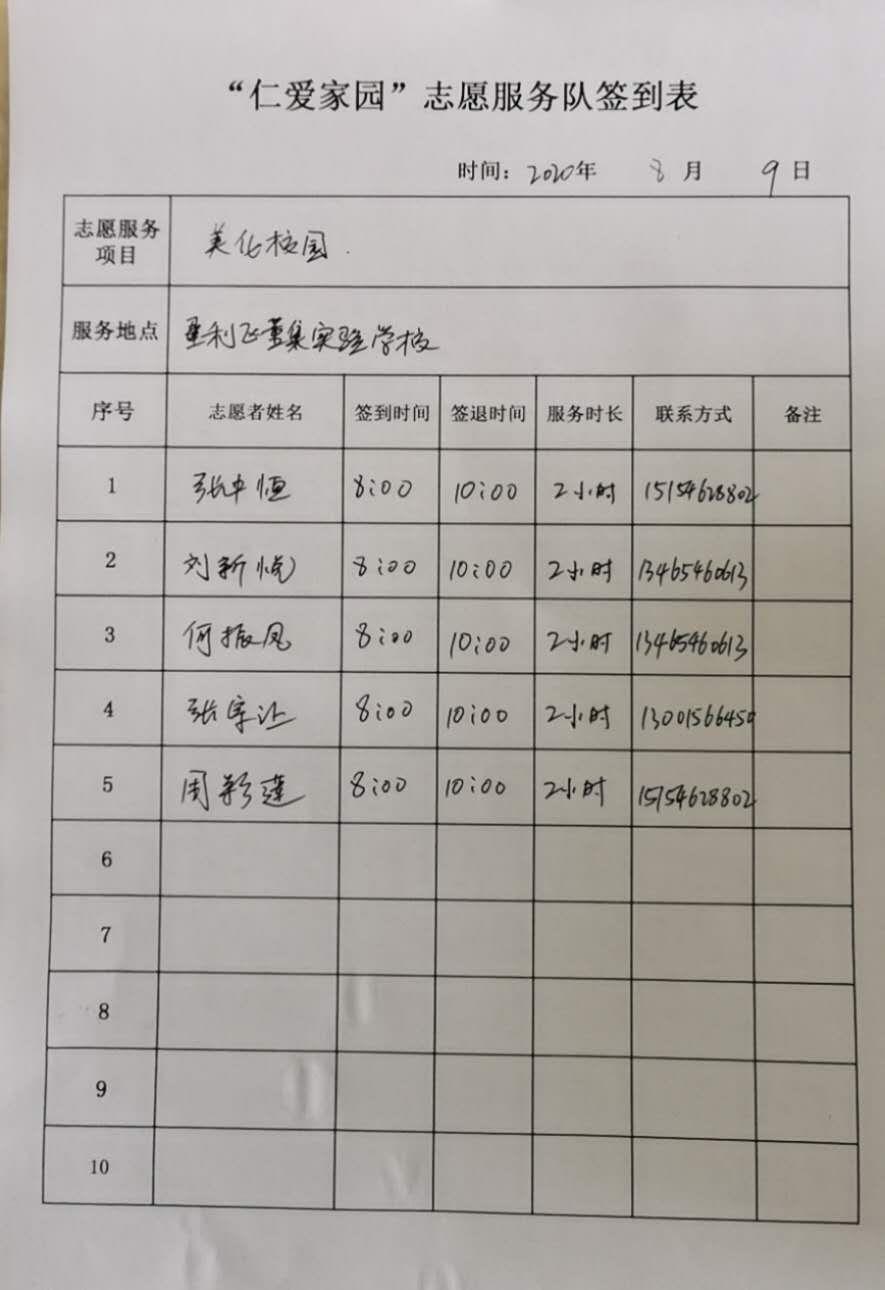 “仁爱家园”志愿服务队签到表
时间：2020年 8月 9日
志愿服务项目 美化校园
服务地点 垦利区董集实验学校
序号 志愿者姓名 签到时间 签退时间 服务时长 联系方式 备注
1 张中恒 8:00 10:00 2小时 15154628802
2 刘新悦 8:00 10:00 2小时 13465460613
3 何振凤 8:00 10:00 2小时 13465460613
4 张 8:00 10:00 2小时 13001566450
5 周彩莲 8:00 10:00 2小时 15154628802
6
7
8
9
10